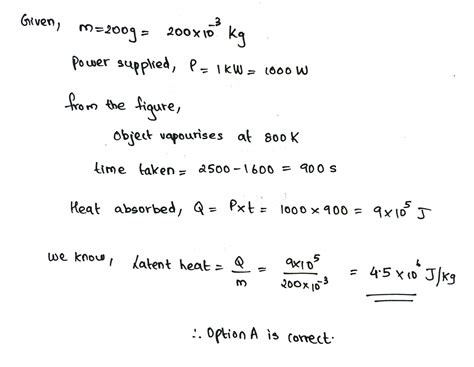 Given, m=200g = 200×10⁻³ kg
Power supplied, P = 1KW = 1000 W
from the figure,
Object vapourises at 800K
time taken = 2500-1600 = 900 s
Heat absorbed, Q = P×t = 1000×900 = 9×10⁵ J
we know, Latent heat = Q/m = 9×10⁵/200×10⁻³ = 4.5×10⁶ J/kg
∴ Option A is correct.